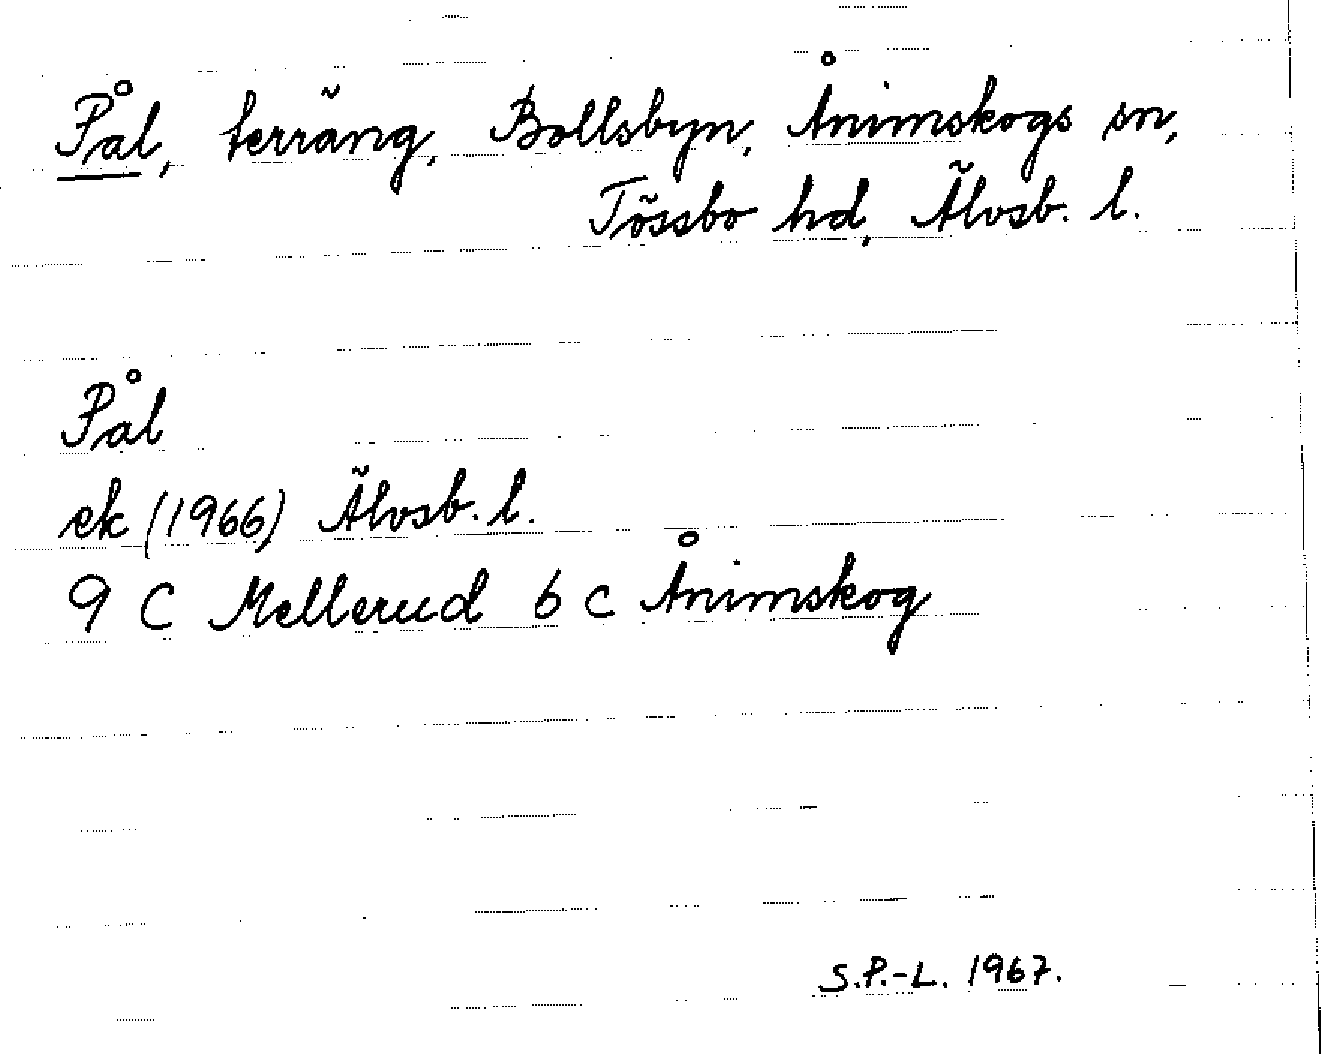 Pål, terräng, Bollsbyn, Ånimskogs sn,
Tössbo hd, Älvsb. l.
Pål
ek (1966) Älvsb. l.
9 C Mellerud 6 c Ånimskog
S.P.-L. 1967.